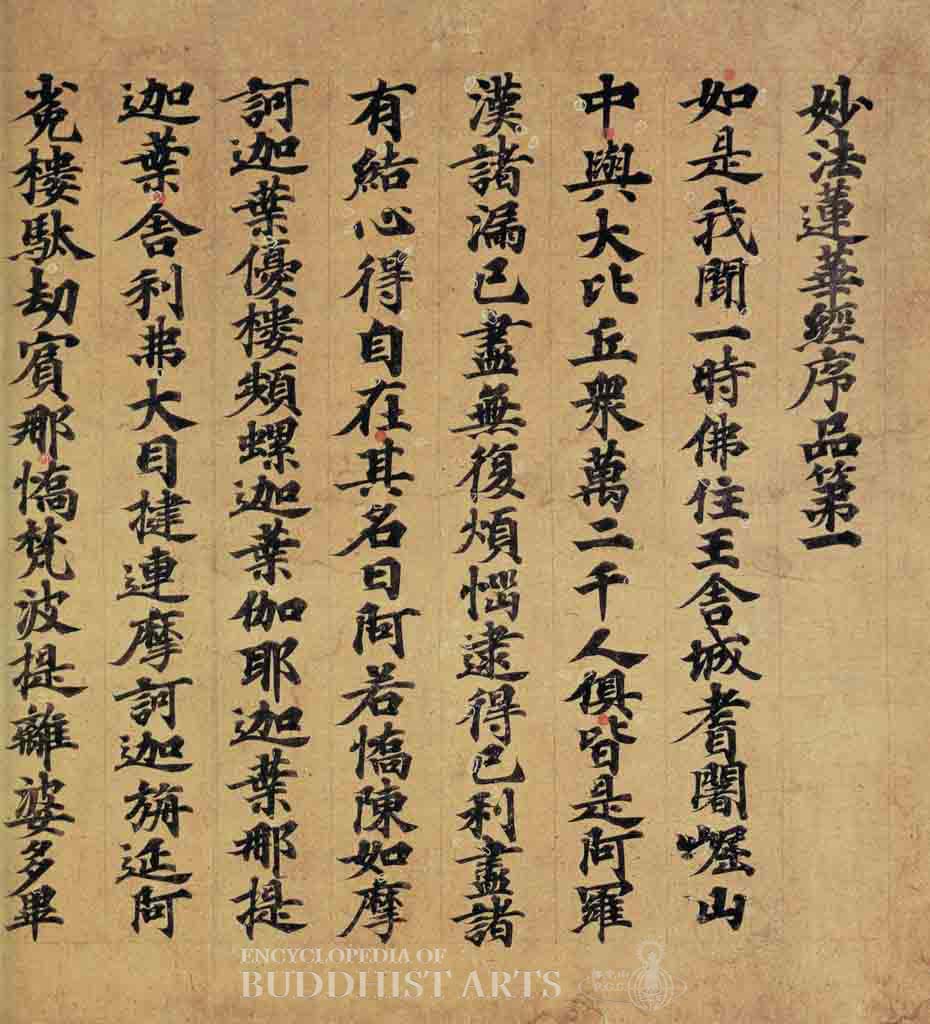 妙法蓮華經序品第一
如是我聞一時佛住王舍城耆闍崛山
中與大比丘衆萬二千人俱皆是阿羅
漢諸漏已盡無復煩惱逮得己利盡諸
有結心得自在其名曰阿若憍陳如摩
訶迦葉優樓頻螺迦葉伽耶迦葉那提
迦葉舍利弗大目揵連摩訶迦旃延阿
㝹樓馱劫賓那憍梵波提離婆多畢
ENCYCLOPEDIA OF
BUDDHIST ARTS